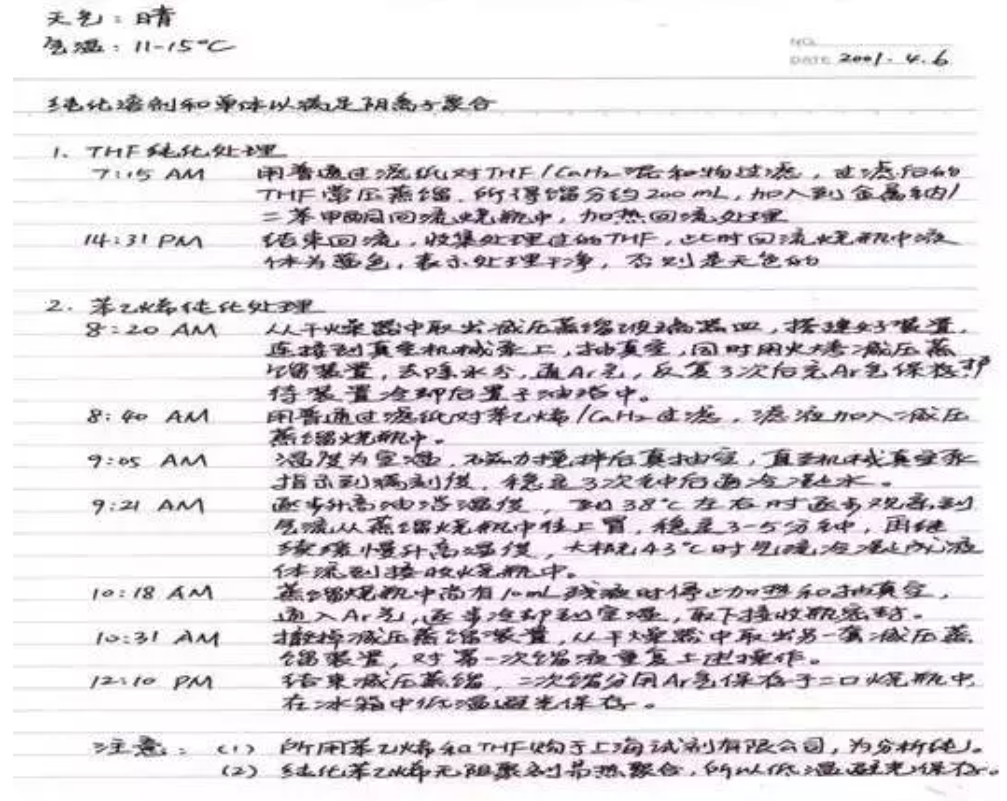 天气：晴
气温：11-15°C
NO.
DATE 2001.4.6
纯化溶剂和单体以满足阴离子聚合
1. THF纯化处理
7:15 AM 用普通过滤纸对THF/CaH₂混和物过滤，过滤后的
THF常压蒸馏，所得馏分约200 mL，加入到金属钠/
二苯甲酮回流烧瓶中，加热回流处理
14:31 PM 结束回流，收集处理过的THF，此时回流烧瓶中液
体为蓝色，表示处理干净，否则是无色的
2. 苯乙烯纯化处理
8:20 AM 从干燥器中取出减压蒸馏玻璃器皿，搭建好装置，
连接到真空机械泵上，抽真空，同时用火烤减压蒸
馏装置，去除水分，通Ar气，反复3次后充Ar气保护
待装置冷却后置于油浴中。
8:40 AM 用普通过滤纸对苯乙烯/CaH₂过滤，滤液加入减压
蒸馏烧瓶中。
9:05 AM 温度为室温，磁力搅拌后真抽空，直至机械真空泵
指示到满刻度，稳定3分钟后通冷凝水。
9:21 AM 逐步升高油浴温度，到38°C左右时逐步观察到
气流从蒸馏烧瓶中往上冒，稳定3-5分钟，再继
续缓慢升高温度，大概43°C时气流冷凝成液
体流到接收烧瓶中。
10:18 AM 蒸馏烧瓶中尚有10mL残液时停止加热和抽真空，
通入Ar气，逐步冷却到室温，取下接收瓶密封。
10:31 AM 撤掉减压蒸馏装置，从干燥器中取出另一套减压蒸
馏装置，对第一次馏液重复上述操作。
12:10 PM 结束减压蒸馏，二次馏分用Ar气保存于二口烧瓶中，
在冰箱中低温避光保存。
注意：(1) 所用苯乙烯和THF购于上海试剂有限公司，为分析纯。
(2) 纯化苯乙烯无阻聚剂易热聚合，所以低温避光保存。